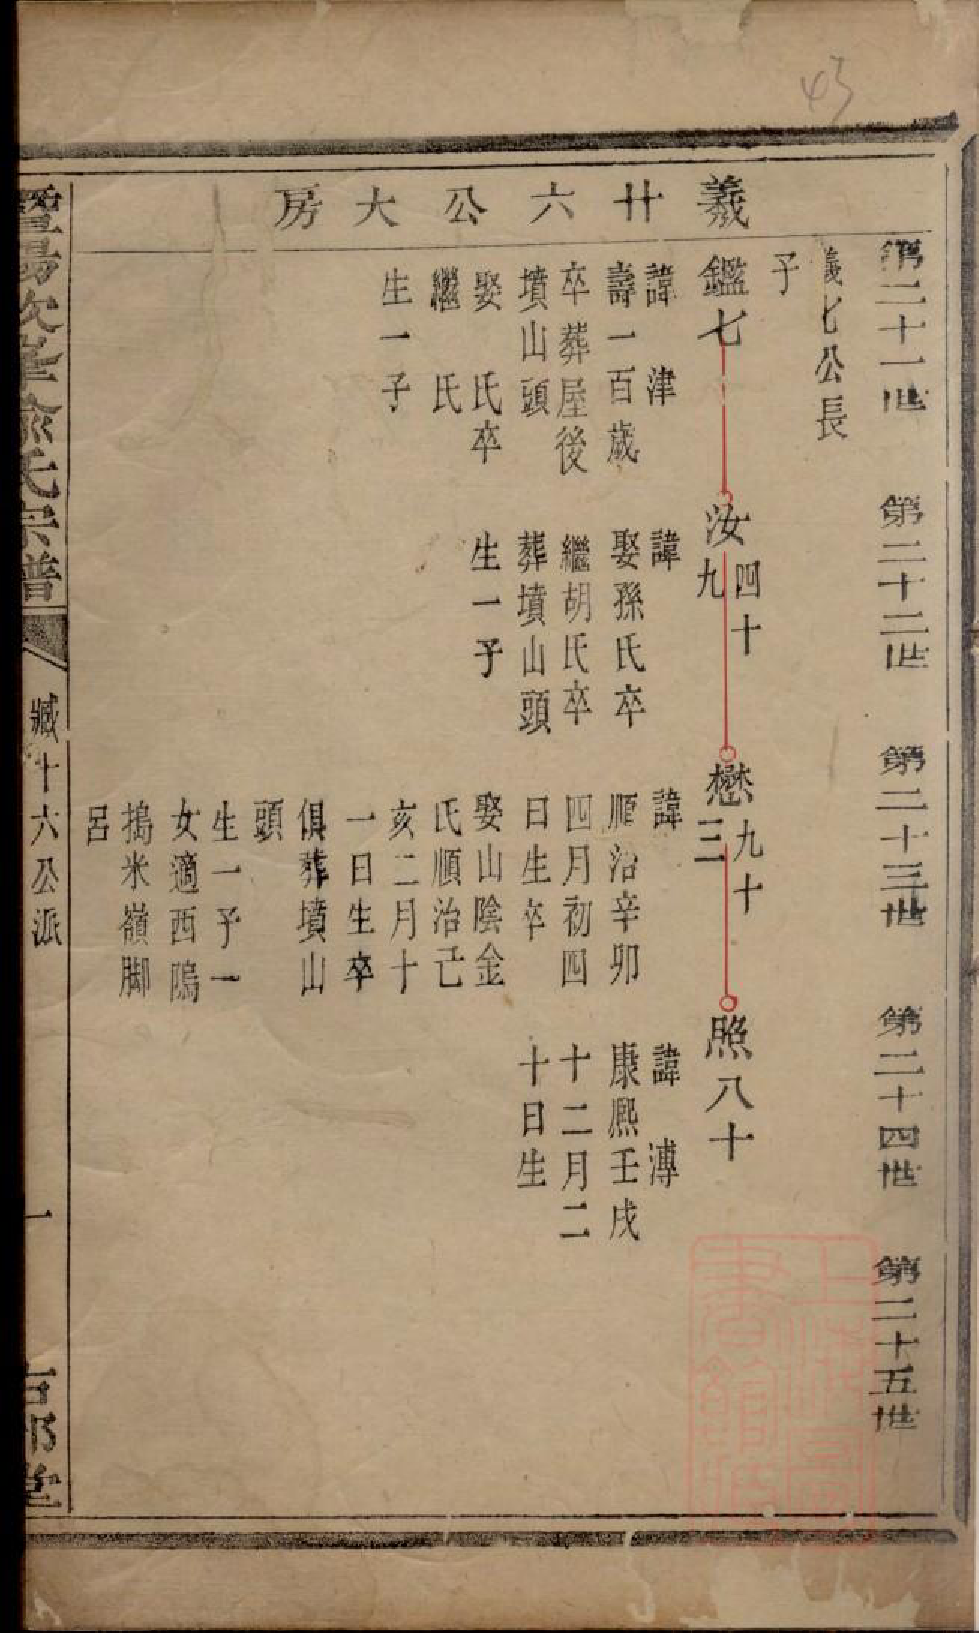 43
第二十一世
第二十二世
第二十三世
第二十四世
第二十五世
義七公長
子
義廿六公大房
鑑七
諱津
壽一百歲
卒葬屋後
墳山頭
娶 氏卒
繼 氏
生一子
汝四十九
諱
娶孫氏卒
繼胡氏卒
葬墳山頭
生一子
懋九十三
諱
順治辛卯
四月初四
日生卒
娶山陰金
氏順治己
亥二月十
一日生卒
俱葬墳山
頭
生一子一
女適西隖
搗米嶺脚
呂
照八十
諱溥
康熙壬戌
十二月二
十日生
暨陽次峯俞氏宗譜
臧十六公派
一
上海圖書館藏